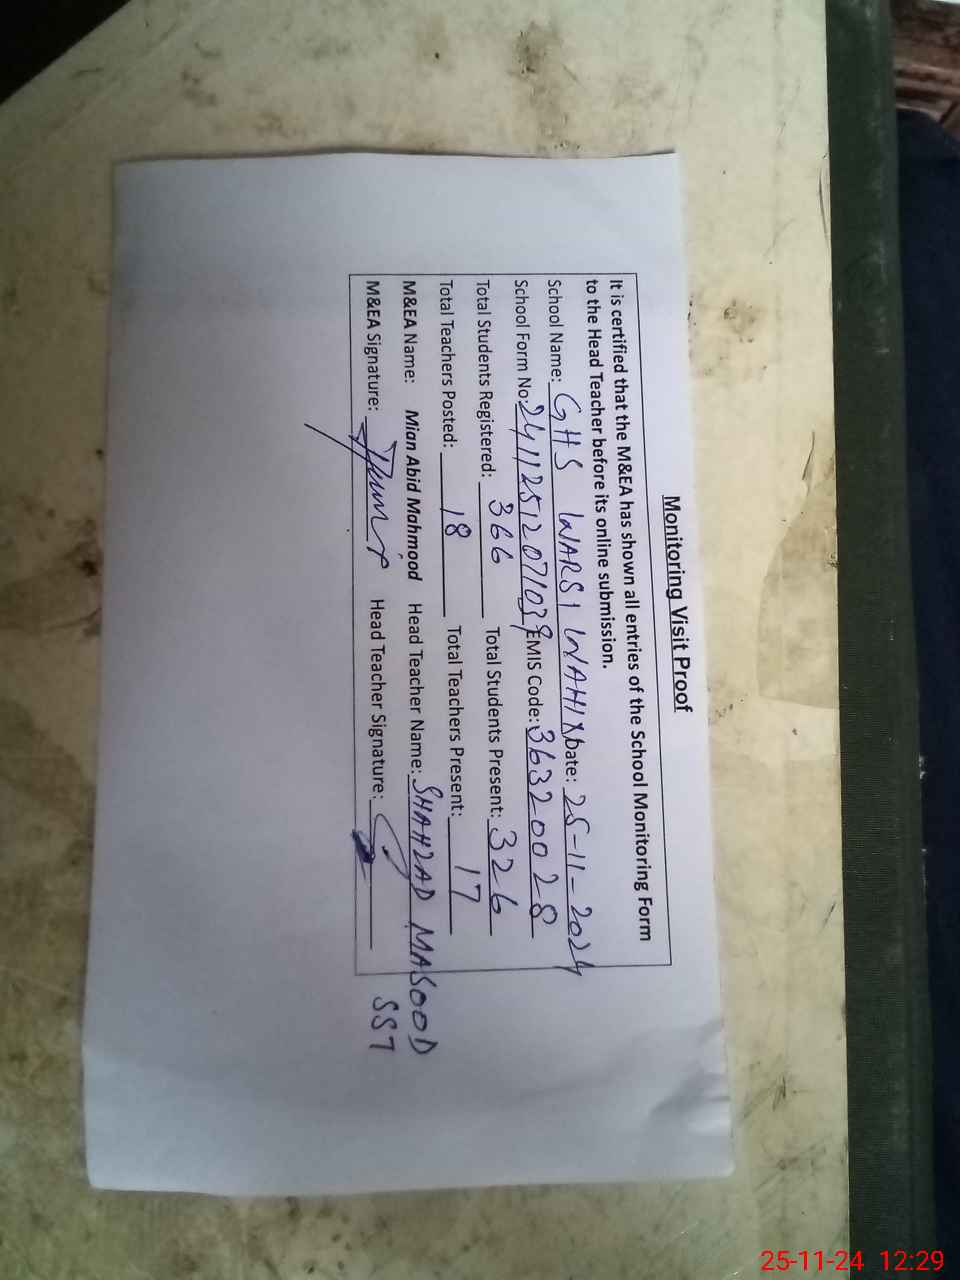 Monitoring Visit Proof
It is certified that the M&EA has shown all entries of the School Monitoring Form
to the Head Teacher before its online submission.
School Name: GHS WARSI WAHIX Date: 25-11-2024
School Form No: 24112512071039 EMIS Code: 36320028
Total Students Registered: 366 Total Students Present: 326
Total Teachers Posted: 18 Total Teachers Present: 17
M&EA Name: Mian Abid Mahmood Head Teacher Name: SHAHZAD MASOOD
M&EA Signature: Head Teacher Signature: SST
25-11-24 12:29